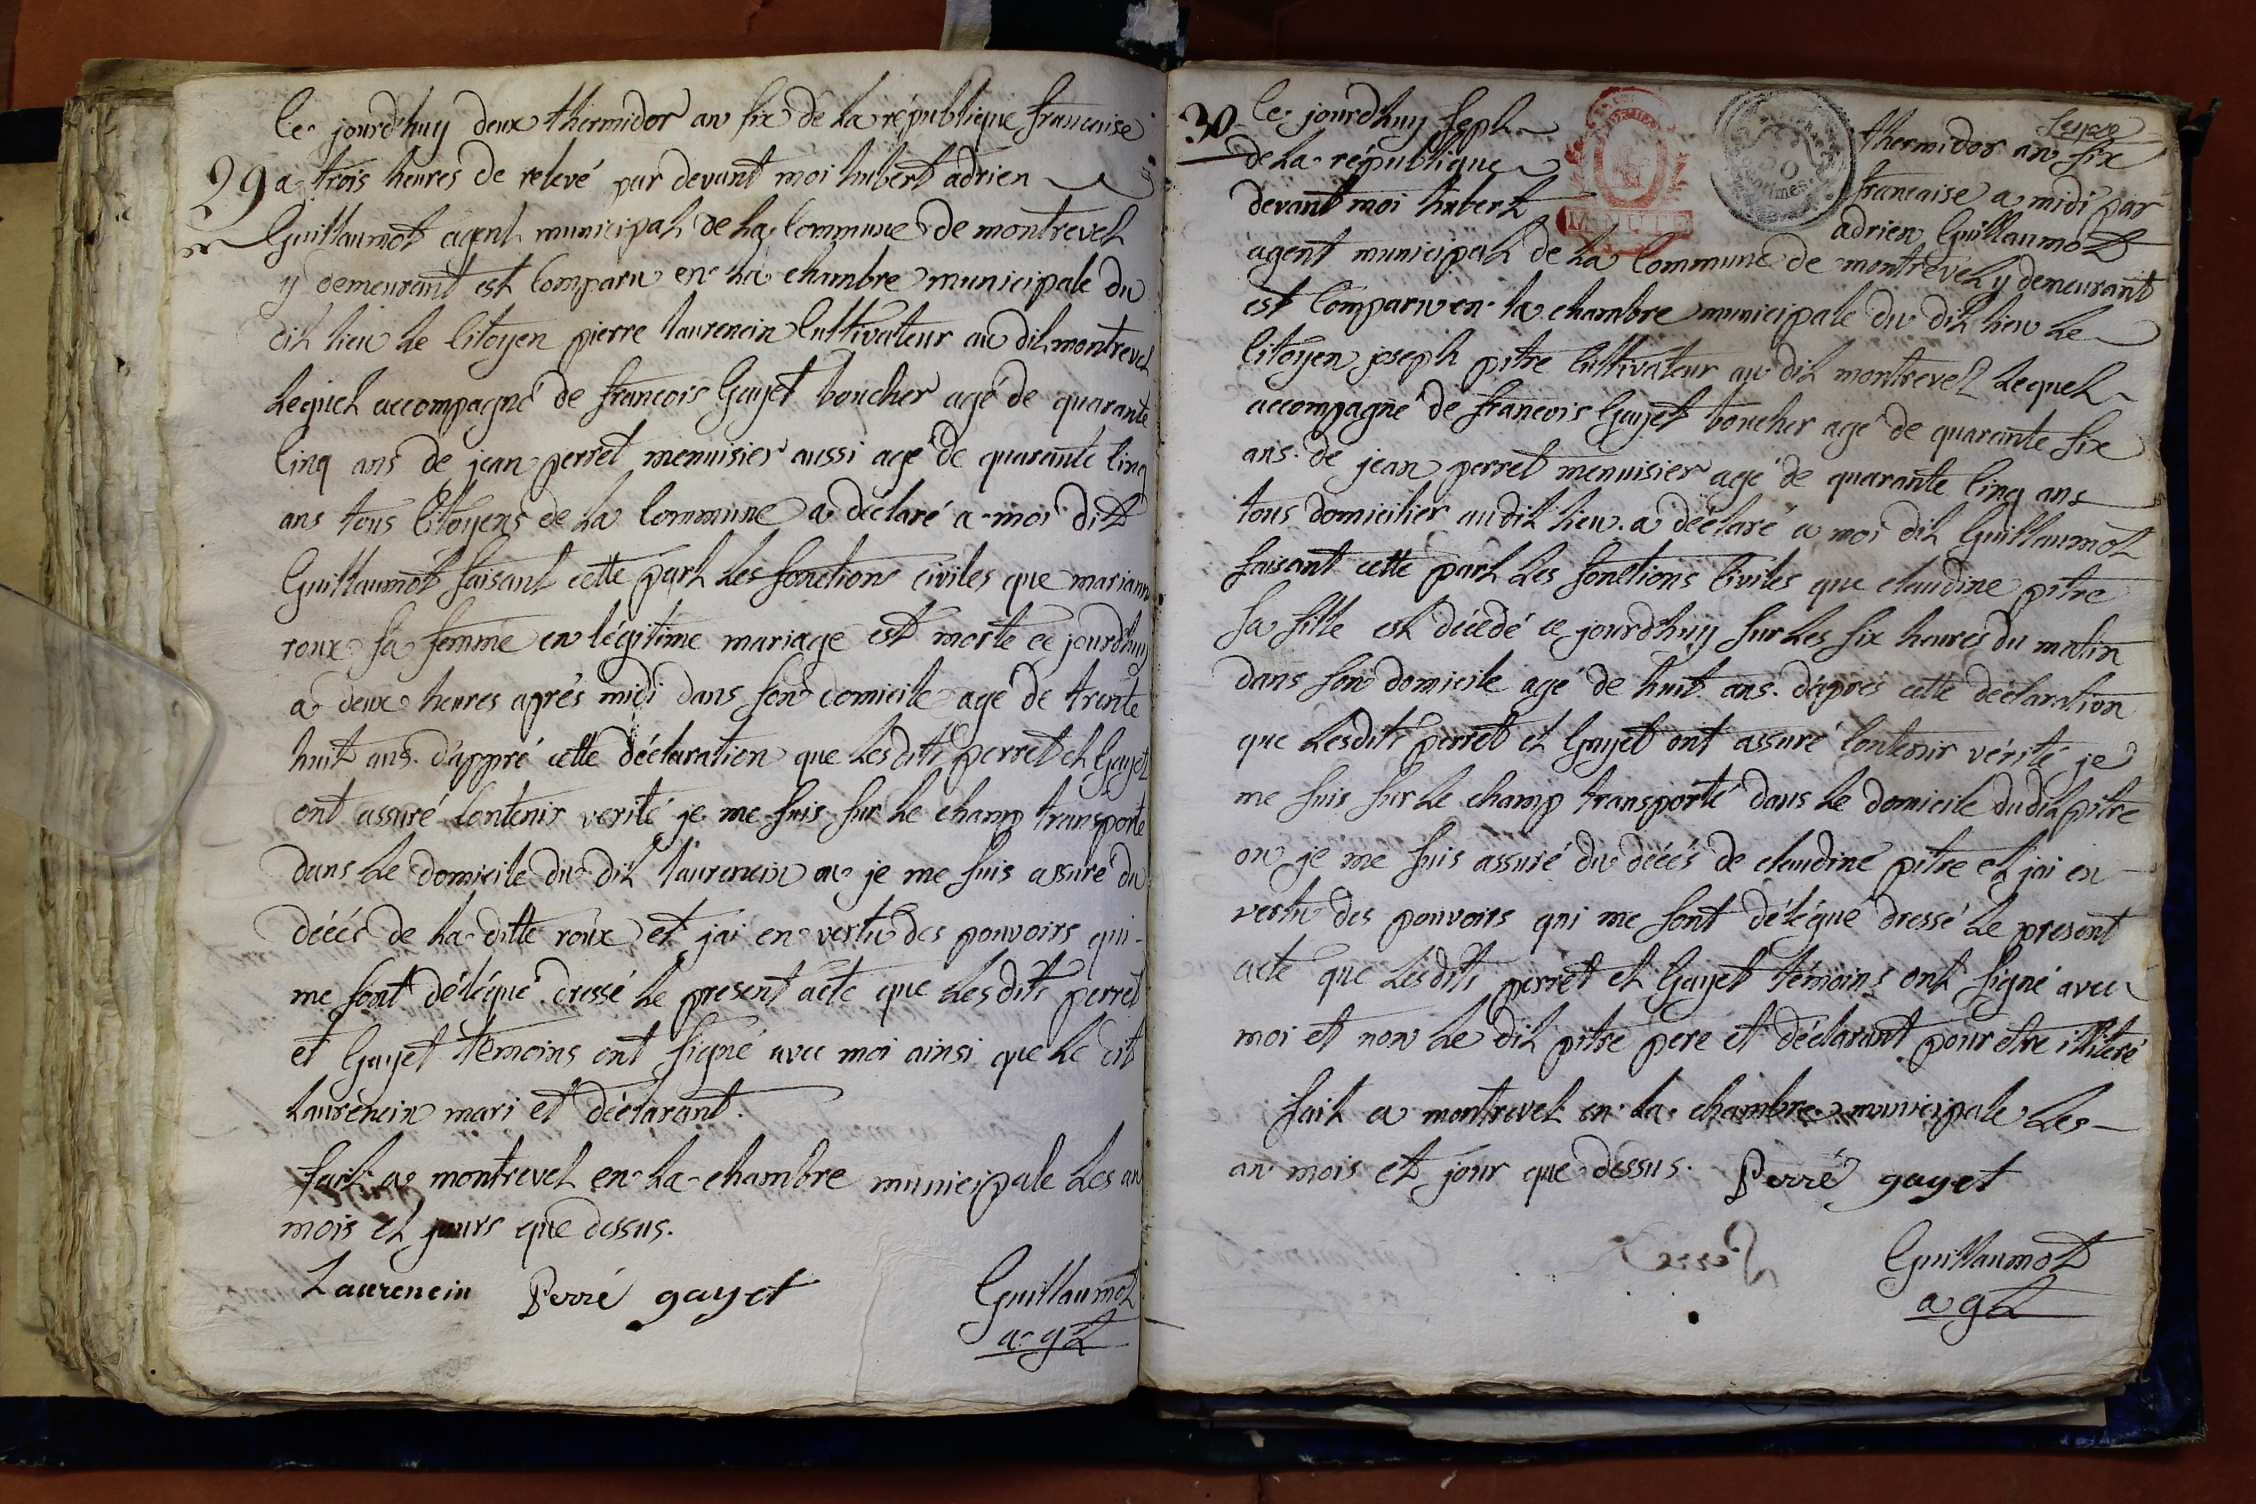 Ce jourd'huy deux thermidor an six de la république francaise
29 a trois heures de relevé par devant moi hubert adrien
Guillaumot agent municipal de la Commune de montrevel
y demeurant est Comparu en la chambre municipale du
dit lieu le Citoyen pierre laurencin Cultivateur au dit montrevel
lequel accompagné de francois Gayet boucher agé de quarante
Cinq ans de jean perret menuisier aussi agé de quarante Cinq
ans tous Citoyens de la Commune a déclaré a moi dit
Guillaumot faisant cette part les fonctions civiles que mariann
roux sa femme en légitime mariage est morte ce jourd'huy
a deux heures aprés midi dans son domicile agé de trente
huit ans. d'appré cette déclaration que lesdits perret et Gayet
ont assuré Contenir verité je me suis sur le champ transporté
dans le domicile du dit laurencin ou je me suis assuré du
décés de la ditte roux et jai en vertu des pouvoirs qui
me sont délégué dressé le present acte que lesdits perret
et Gayet témoins ont signé avec moi ainsi que le dit
laurencin mari et déclarant.
fait a montrevel en la chambre municipale les an
mois et jours que dessus.
Laurencin Perré gayet Guillaumot
agt
30 Ce jourd'huy sept thermidor an six
de la république francaise a midi par
devant moi hubert adrien Guillaumot
agent municipal de la Commune de montrevel y demeurant
est Comparu en la chambre municipale du dit lieu le
Citoyen joseph pitre Cultivateur au dit montrevel lequel
accompagné de francois Gayet boucher agé de quarante six
ans. de jean perret menuisier agé de quarante Cinq ans
tous domicilier audit lieu. a déclaré a moi dit Guillaumot
faisant cette part les fonctions Civiles que claudine pitre
sa fille est décedé ce jourd'huy sur les six heures du matin
dans son domicile agé de huit ans. d'aprés cette déclaration
que lesdits perret et Gayet ont assuré Contenir vérité je
me suis sur le champ transporté dans le domicile dudit pitre
ou je me suis assuré du décés de claudine pitre et jai en
vertu des pouvoirs qui me sont délégué dressé le present
acte que lesdits perret et Gayet témoins ont signé avec
moi et non le dit pitre pere et déclarant pour etre illiteré
fait a montrevel en la chambre municipale les
an mois et jour que dessus. Perré gayet
Guillaumot
agt